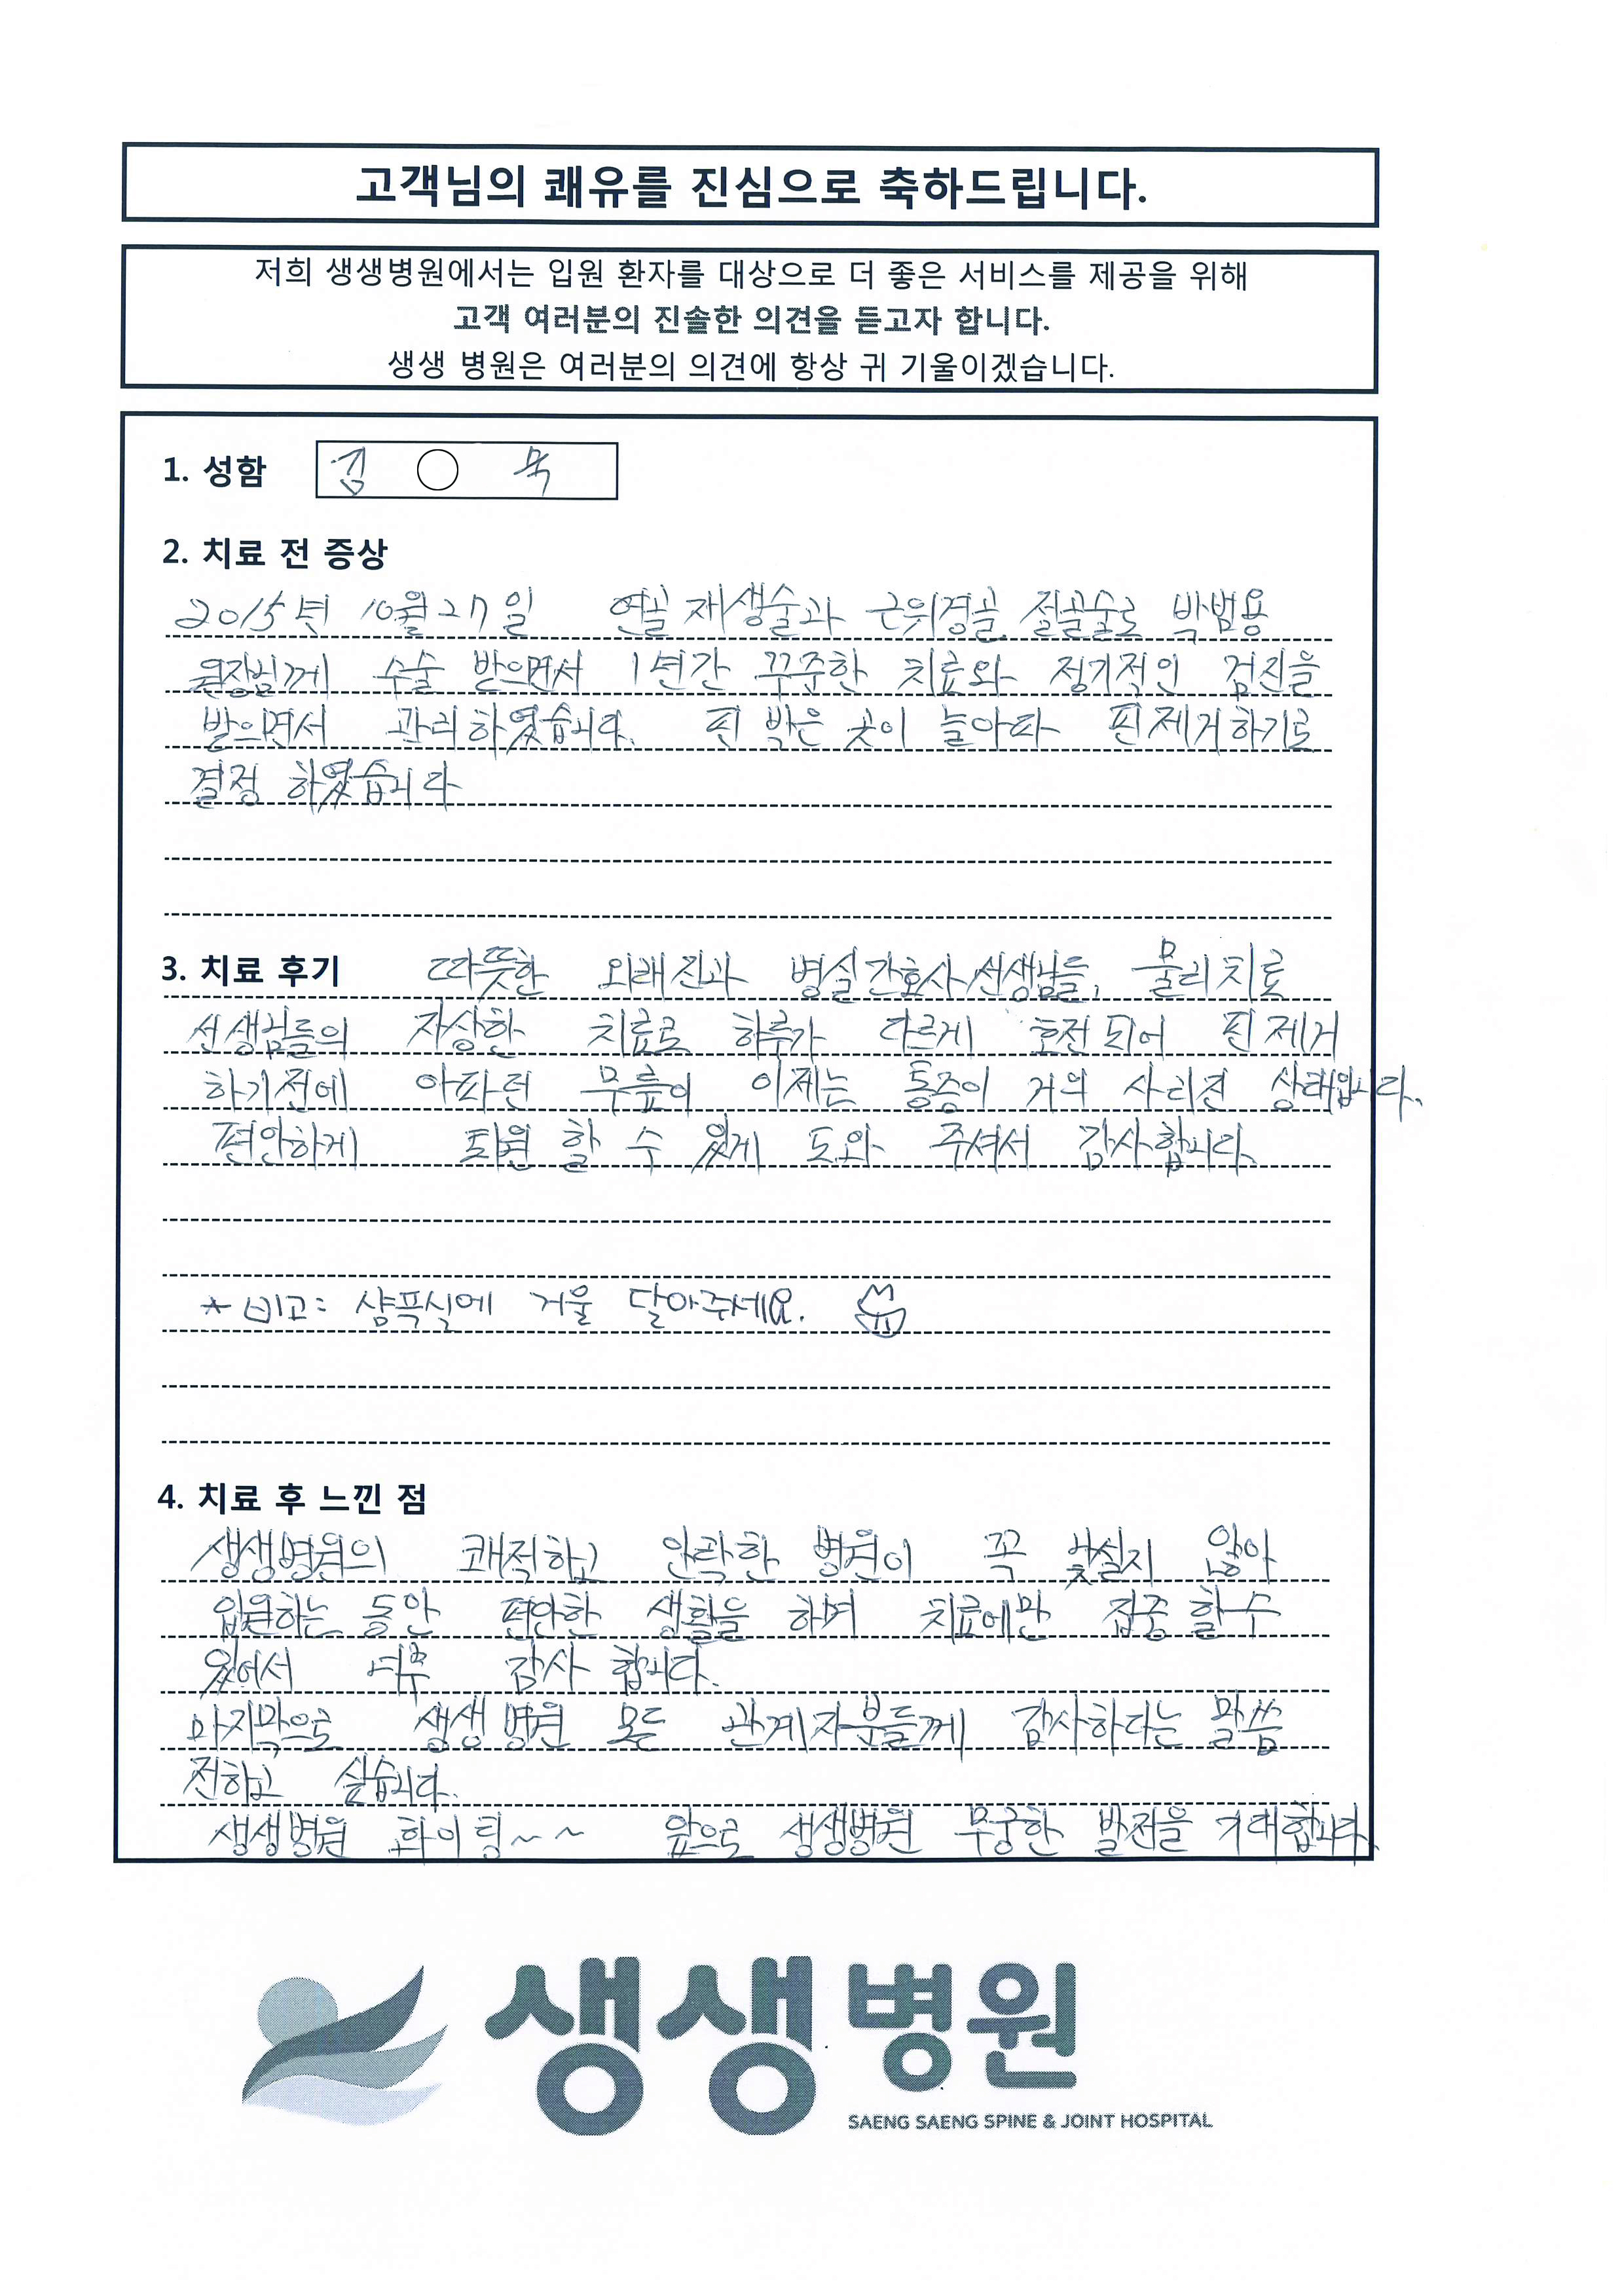 고객님의 쾌유를 진심으로 축하드립니다.
저희 생생병원에서는 입원 환자를 대상으로 더 좋은 서비스를 제공을 위해
고객 여러분의 진솔한 의견을 듣고자 합니다.
생생 병원은 여러분의 의견에 항상 귀 기울이겠습니다.
1. 성함 김 ○ 묵
2. 치료 전 증상
2015년 10월 27일 연골 재생술과 근위경골 절골술로 박범용
원장님께 수술 받으면서 1년간 꾸준한 치료와 정기적인 검진을
받으면서 관리하였습니다. 핀 박은 곳이 놀아따 핀제거하기로
결정 하였습니다
3. 치료 후기 따뜻한 외래진과 병실간호사선생님들, 물리치료
선생님들의 자상한 치료로 하루가 다르게 호전 되어 핀 제거
하기전에 아파던 무릎이 이제는 통증이 거의 사라진 상태입니다.
편안하게 퇴원 할 수 있게 도와 주셔서 감사합니다.
* 비고: 샴푸실에 거울 달아주세요.
4. 치료 후 느낀 점
생생병원의 쾌적하고 안락한 병원이 꼭 낯설지 않아
입원하는 동안 편안한 생활을 하며 치료에만 집중 할 수
있어서 너무 감사 합니다.
마지막으로 생생병원 모든 관계자분들께 감사하다는 말씀
전하고 싶습니다.
생생병원 화이팅~~ 앞으로 생생병원 무궁한 발전을 기대합니다.
생생병원
SAENG SAENG SPINE & JOINT HOSPITAL